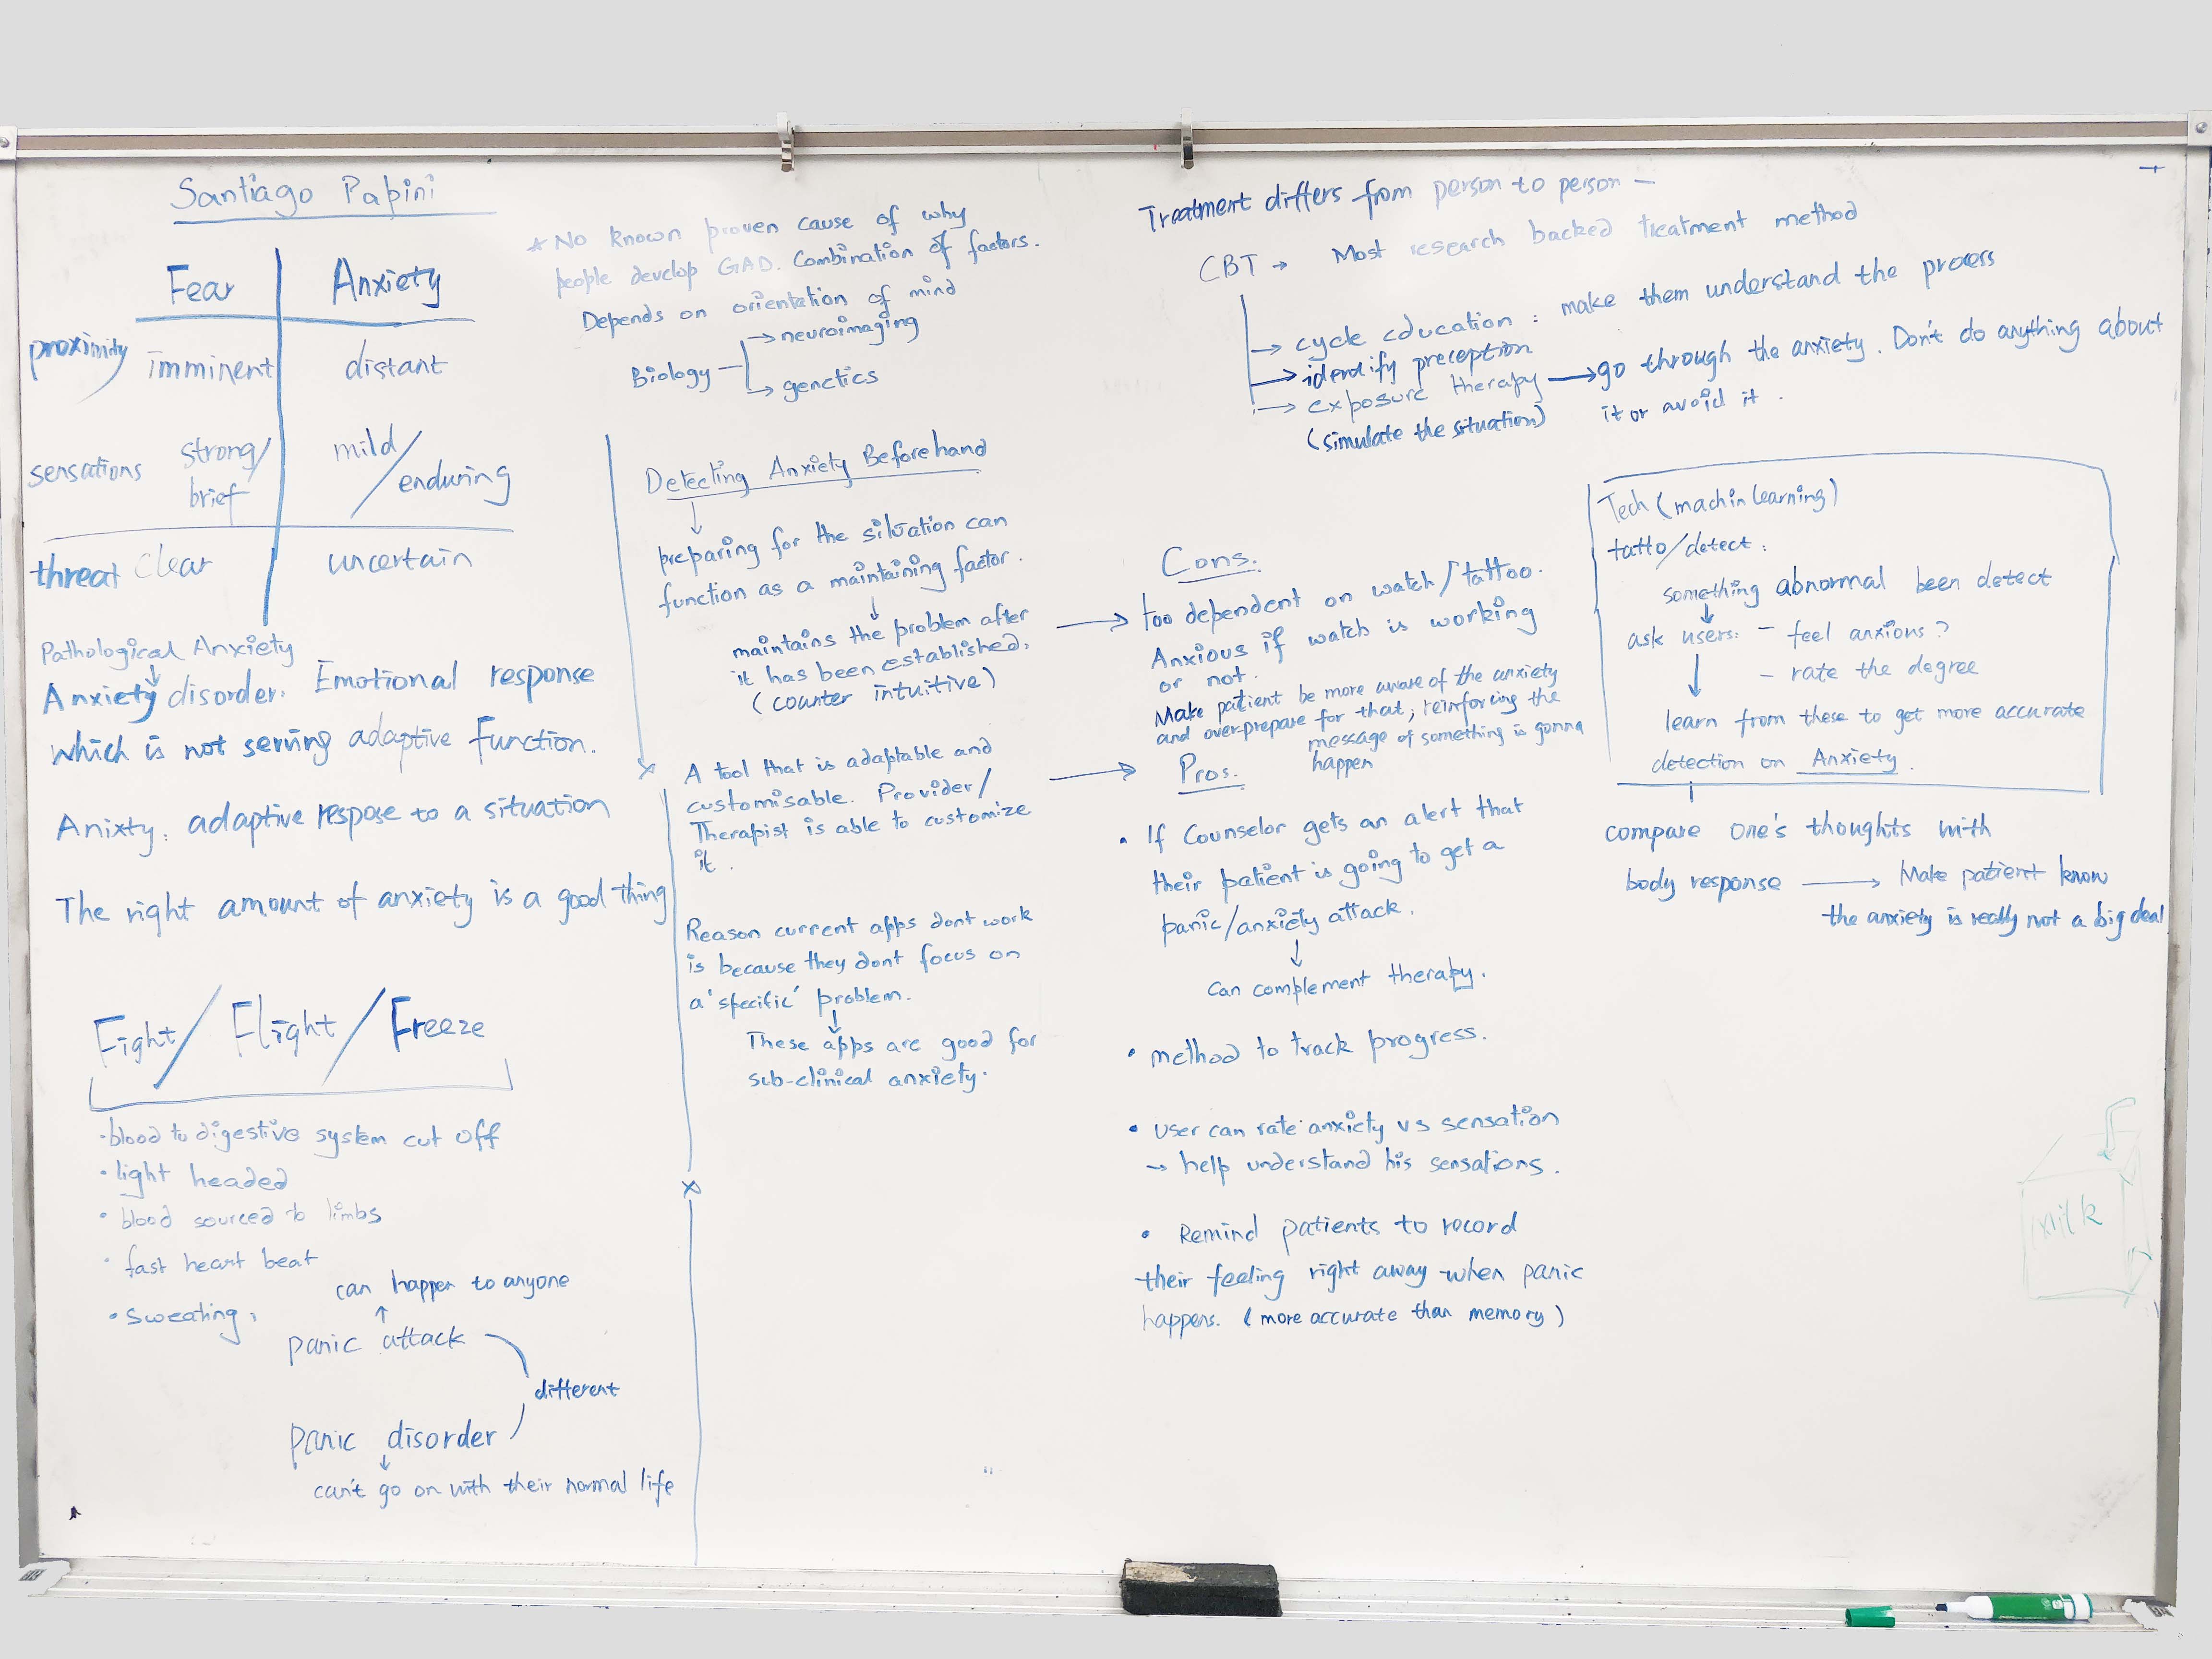 Santiago Papini
Fear Anxiety
proximity imminent distant
sensations strong/ brief mild/ enduring
threat clear uncertain
Pathological Anxiety
Anxiety disorder: Emotional response
which is not serving adaptive function.
Anixty: adaptive respose to a situation
The right amount of anxiety is a good thing
Fight/ Flight/ Freeze
• blood to digestive system cut off
• light headed
• blood sourced to limbs
• fast heart beat
• sweating,
can happen to anyone
panic attack
different
panic disorder
can't go on with their normal life
* No known proven cause of why
people develop GAD. Combination of factors.
Depends on orientation of mind
Biology → neuroimaging
→ genetics
Detecting Anxiety Beforehand
preparing for the situation can
function as a maintaining factor.
maintains the problem after
it has been established.
(counter intuitive)
A tool that is adaptable and
customisable. Provider/
Therapist is able to customize
it.
Reason current apps dont work
is because they dont focus on
a 'specific' problem.
These apps are good for
sub-clinical anxiety.
Treatment differs from person to person –
CBT → Most research backed treatment method
→ cycle education : make them understand the process
→ identify preception
→ exposure therapy → go through the anxiety. Don't do anything about
(simulate the situation) it or avoid it.
Cons.
too dependent on watch/tattoo.
Anxious if watch is working
or not.
Make patient be more aware of the anxiety
and overprepare for that; reinforcing the
message of something is gonna
happen
Pros.
• If Counselor gets an alert that
their patient is going to get a
panic/anxiety attack.
can complement therapy.
• method to track progress.
• user can rate anxiety vs sensation
→ help understand his sensations.
• Remind patients to record
their feeling right away when panic
happens. (more accurate than memory)
Tech (machin learning)
tatto/detect:
something abnormal been detect
ask users: – feel anxions?
– rate the degree
learn from these to get more accurate
detection on Anxiety.
compare one's thoughts with
body response → Make patient know
the anxiety is really not a big deal
milk